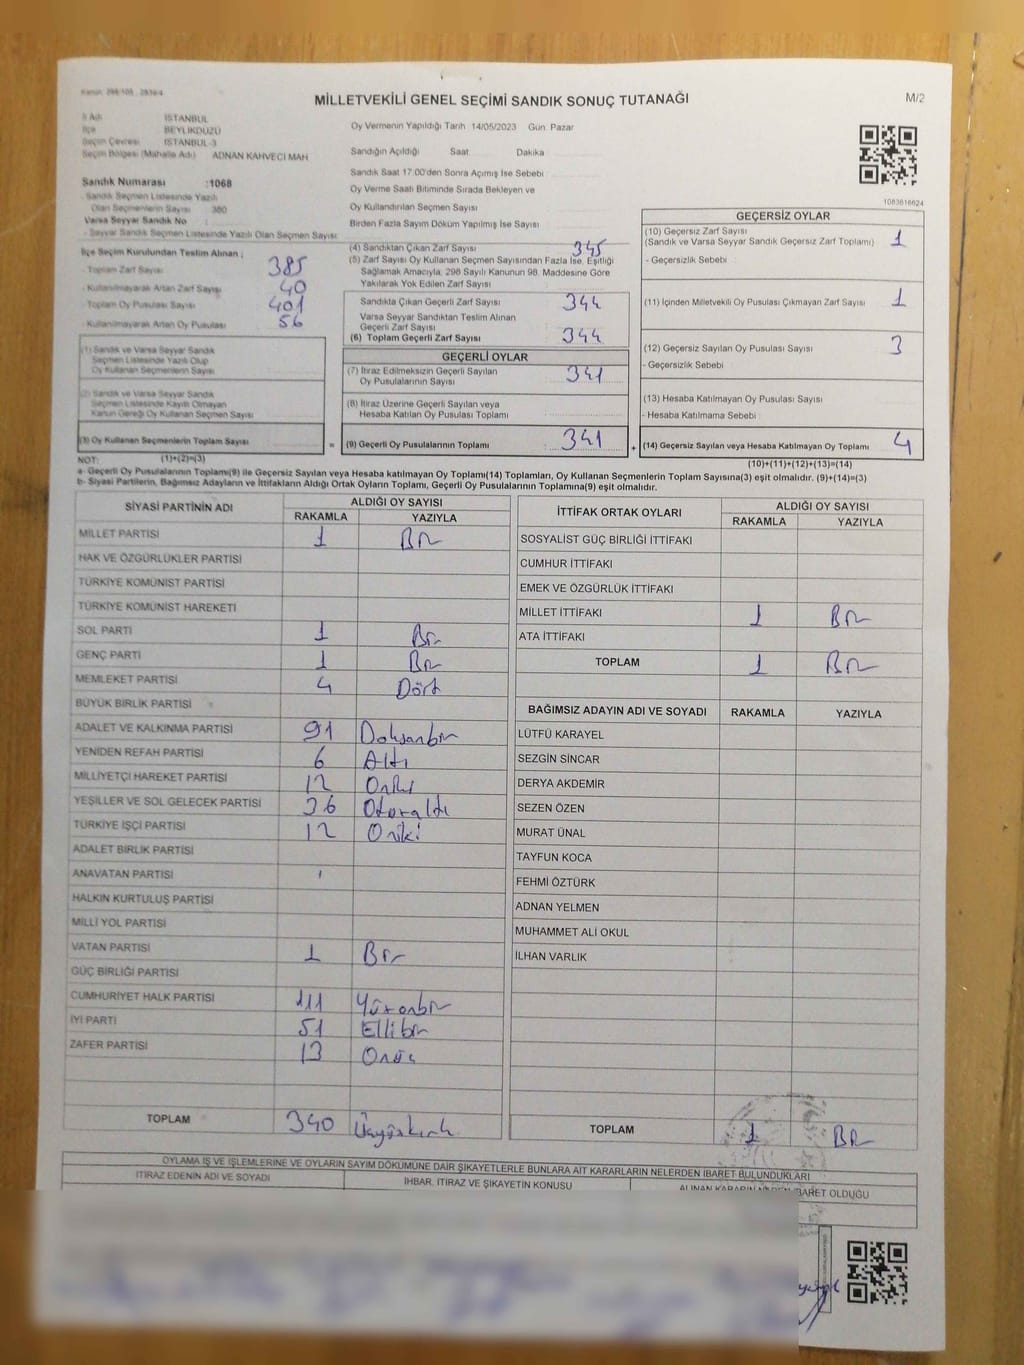 MİLLETVEKİLİ GENEL SEÇİMİ SANDIK SONUÇ TUTANAĞI
M/2
İli Adı İSTANBUL
İlçe BEYLİKDÜZÜ
Seçim Çevresi İSTANBUL-3
Seçim Bölgesi (Mahalle Adı) ADNAN KAHVECİ MAH
Sandık Numarası :1068
Sandık Seçmen Listesinde Yazılı
Olan Seçmenlerin Sayısı 380
Varsa Seyyar Sandık No
- Seyyar Sandık Seçmen Listesinde Yazılı Olan Seçmen Sayısı
İlçe Seçim Kurulundan Teslim Alınan ;
- Toplam Zarf Sayısı 385
- Kullanılmayarak Artan Zarf Sayısı 40
- Toplam Oy Pusulası Sayısı 401
- Kullanılmayarak Artan Oy Pusulası 56
(1) Sandık ve Varsa Seyyar Sandık
Seçmen Listesinde Yazılı Olup
Oy Kullanan Seçmenlerin Sayısı
(2) Sandık ve Varsa Seyyar Sandık
Seçmen Listesinde Kayıtlı Olmayan
Kanun Gereği Oy Kullanan Seçmen Sayısı
(3) Oy Kullanan Seçmenlerin Toplam Sayısı
(1)+(2)=(3)
Oy Vermenin Yapıldığı Tarih 14/05/2023 Gün: Pazar
Sandığın Açıldığı Saat Dakika
Sandık Saat 17.00'den Sonra Açımış İse Sebebi
Oy Verme Saati Bitiminde Sırada Bekleyen ve
Oy Kullandırılan Seçmen Sayısı
Birden Fazla Sayım Döküm Yapılmış İse Sayısı
(4) Sandıktan Çıkan Zarf Sayısı 345
(5) Zarf Sayısı Oy Kullanan Seçmen Sayısından Fazla İse, Eşitliği
Sağlamak Amacıyla, 298 Sayılı Kanunun 98. Maddesine Göre
Yakılarak Yok Edilen Zarf Sayısı
Sandıkta Çıkan Geçerli Zarf Sayısı 344
Varsa Seyyar Sandıktan Teslim Alınan
Geçerli Zarf Sayısı
(6) Toplam Geçerli Zarf Sayısı 344
GEÇERLİ OYLAR
(7) İtiraz Edilmeksizin Geçerli Sayılan
Oy Pusulalarının Sayısı 341
(8) İtiraz Üzerine Geçerli Sayılan veya
Hesaba Katılan Oy Pusulası Toplamı
= (9) Geçerli Oy Pusulalarının Toplamı 341
1083616624
GEÇERSİZ OYLAR
(10) Geçersiz Zarf Sayısı
(Sandık ve Varsa Seyyar Sandık Geçersiz Zarf Toplamı) 1
- Geçersizlik Sebebi
(11) İçinden Milletvekili Oy Pusulası Çıkmayan Zarf Sayısı 1
(12) Geçersiz Sayılan Oy Pusulası Sayısı 3
- Geçersizlik Sebebi
(13) Hesaba Katılmayan Oy Pusulası Sayısı
- Hesaba Katılmama Sebebi
+ (14) Geçersiz Sayılan veya Hesaba Katılmayan Oy Toplamı 4
(10)+(11)+(12)+(13)=(14)
NOT:
a- Geçerli Oy Pusulalarının Toplamı(9) ile Geçersiz Sayılan veya Hesaba katılmayan Oy Toplamı(14) Toplamları, Oy Kullanan Seçmenlerin Toplam Sayısına(3) eşit olmalıdır. (9)+(14)=(3)
b- Siyasi Partilerin, Bağımsız Adayların ve İttifakların Aldığı Ortak Oyların Toplamı, Geçerli Oy Pusulalarının Toplamına(9) eşit olmalıdır.
SİYASİ PARTİNİN ADI ALDIĞI OY SAYISI
RAKAMLA YAZIYLA
MİLLET PARTİSİ 1 Bir
HAK VE ÖZGÜRLÜKLER PARTİSİ
TÜRKİYE KOMÜNİST PARTİSİ
TÜRKİYE KOMÜNİST HAREKETİ
SOL PARTİ 1 Bir
GENÇ PARTİ 1 Bir
MEMLEKET PARTİSİ 4 Dört
BÜYÜK BİRLİK PARTİSİ
ADALET VE KALKINMA PARTİSİ 91 Doksanbir
YENİDEN REFAH PARTİSİ 6 Altı
MİLLİYETÇİ HAREKET PARTİSİ 12 Oniki
YEŞİLLER VE SOL GELECEK PARTİSİ 36 Otuzaltı
TÜRKİYE İŞÇİ PARTİSİ 12 Oniki
ADALET BİRLİK PARTİSİ
ANAVATAN PARTİSİ
HALKIN KURTULUŞ PARTİSİ
MİLLİ YOL PARTİSİ
VATAN PARTİSİ 1 Bir
GÜÇ BİRLİĞİ PARTİSİ
CUMHURİYET HALK PARTİSİ 111 Yüzonbir
İYİ PARTİ 51 Ellibir
ZAFER PARTİSİ 13 Onüç
TOPLAM 340 Üçyüzkırk
İTTİFAK ORTAK OYLARI ALDIĞI OY SAYISI
RAKAMLA YAZIYLA
SOSYALİST GÜÇ BİRLİĞİ İTTİFAKI
CUMHUR İTTİFAKI
EMEK VE ÖZGÜRLÜK İTTİFAKI
MİLLET İTTİFAKI 1 Bir
ATA İTTİFAKI
TOPLAM 1 Bir
BAĞIMSIZ ADAYIN ADI VE SOYADI RAKAMLA YAZIYLA
LÜTFÜ KARAYEL
SEZGİN SİNCAR
DERYA AKDEMİR
SEZEN ÖZEN
MURAT ÜNAL
TAYFUN KOCA
FEHMİ ÖZTÜRK
ADNAN YELMEN
MUHAMMET ALİ OKUL
İLHAN VARLIK
TOPLAM 1 Bir
OYLAMA İŞ VE İŞLEMLERİNE VE OYLARIN SAYIM DÖKÜMÜNE DAİR ŞİKAYETLERLE BUNLARA AİT KARARLARIN NELERDEN İBARET BULUNDUKLARI
İTİRAZ EDENİN ADI VE SOYADI İHBAR, İTİRAZ VE ŞİKAYETİN KONUSU ALINAN KARARIN NEDEN İBARET OLDUĞU